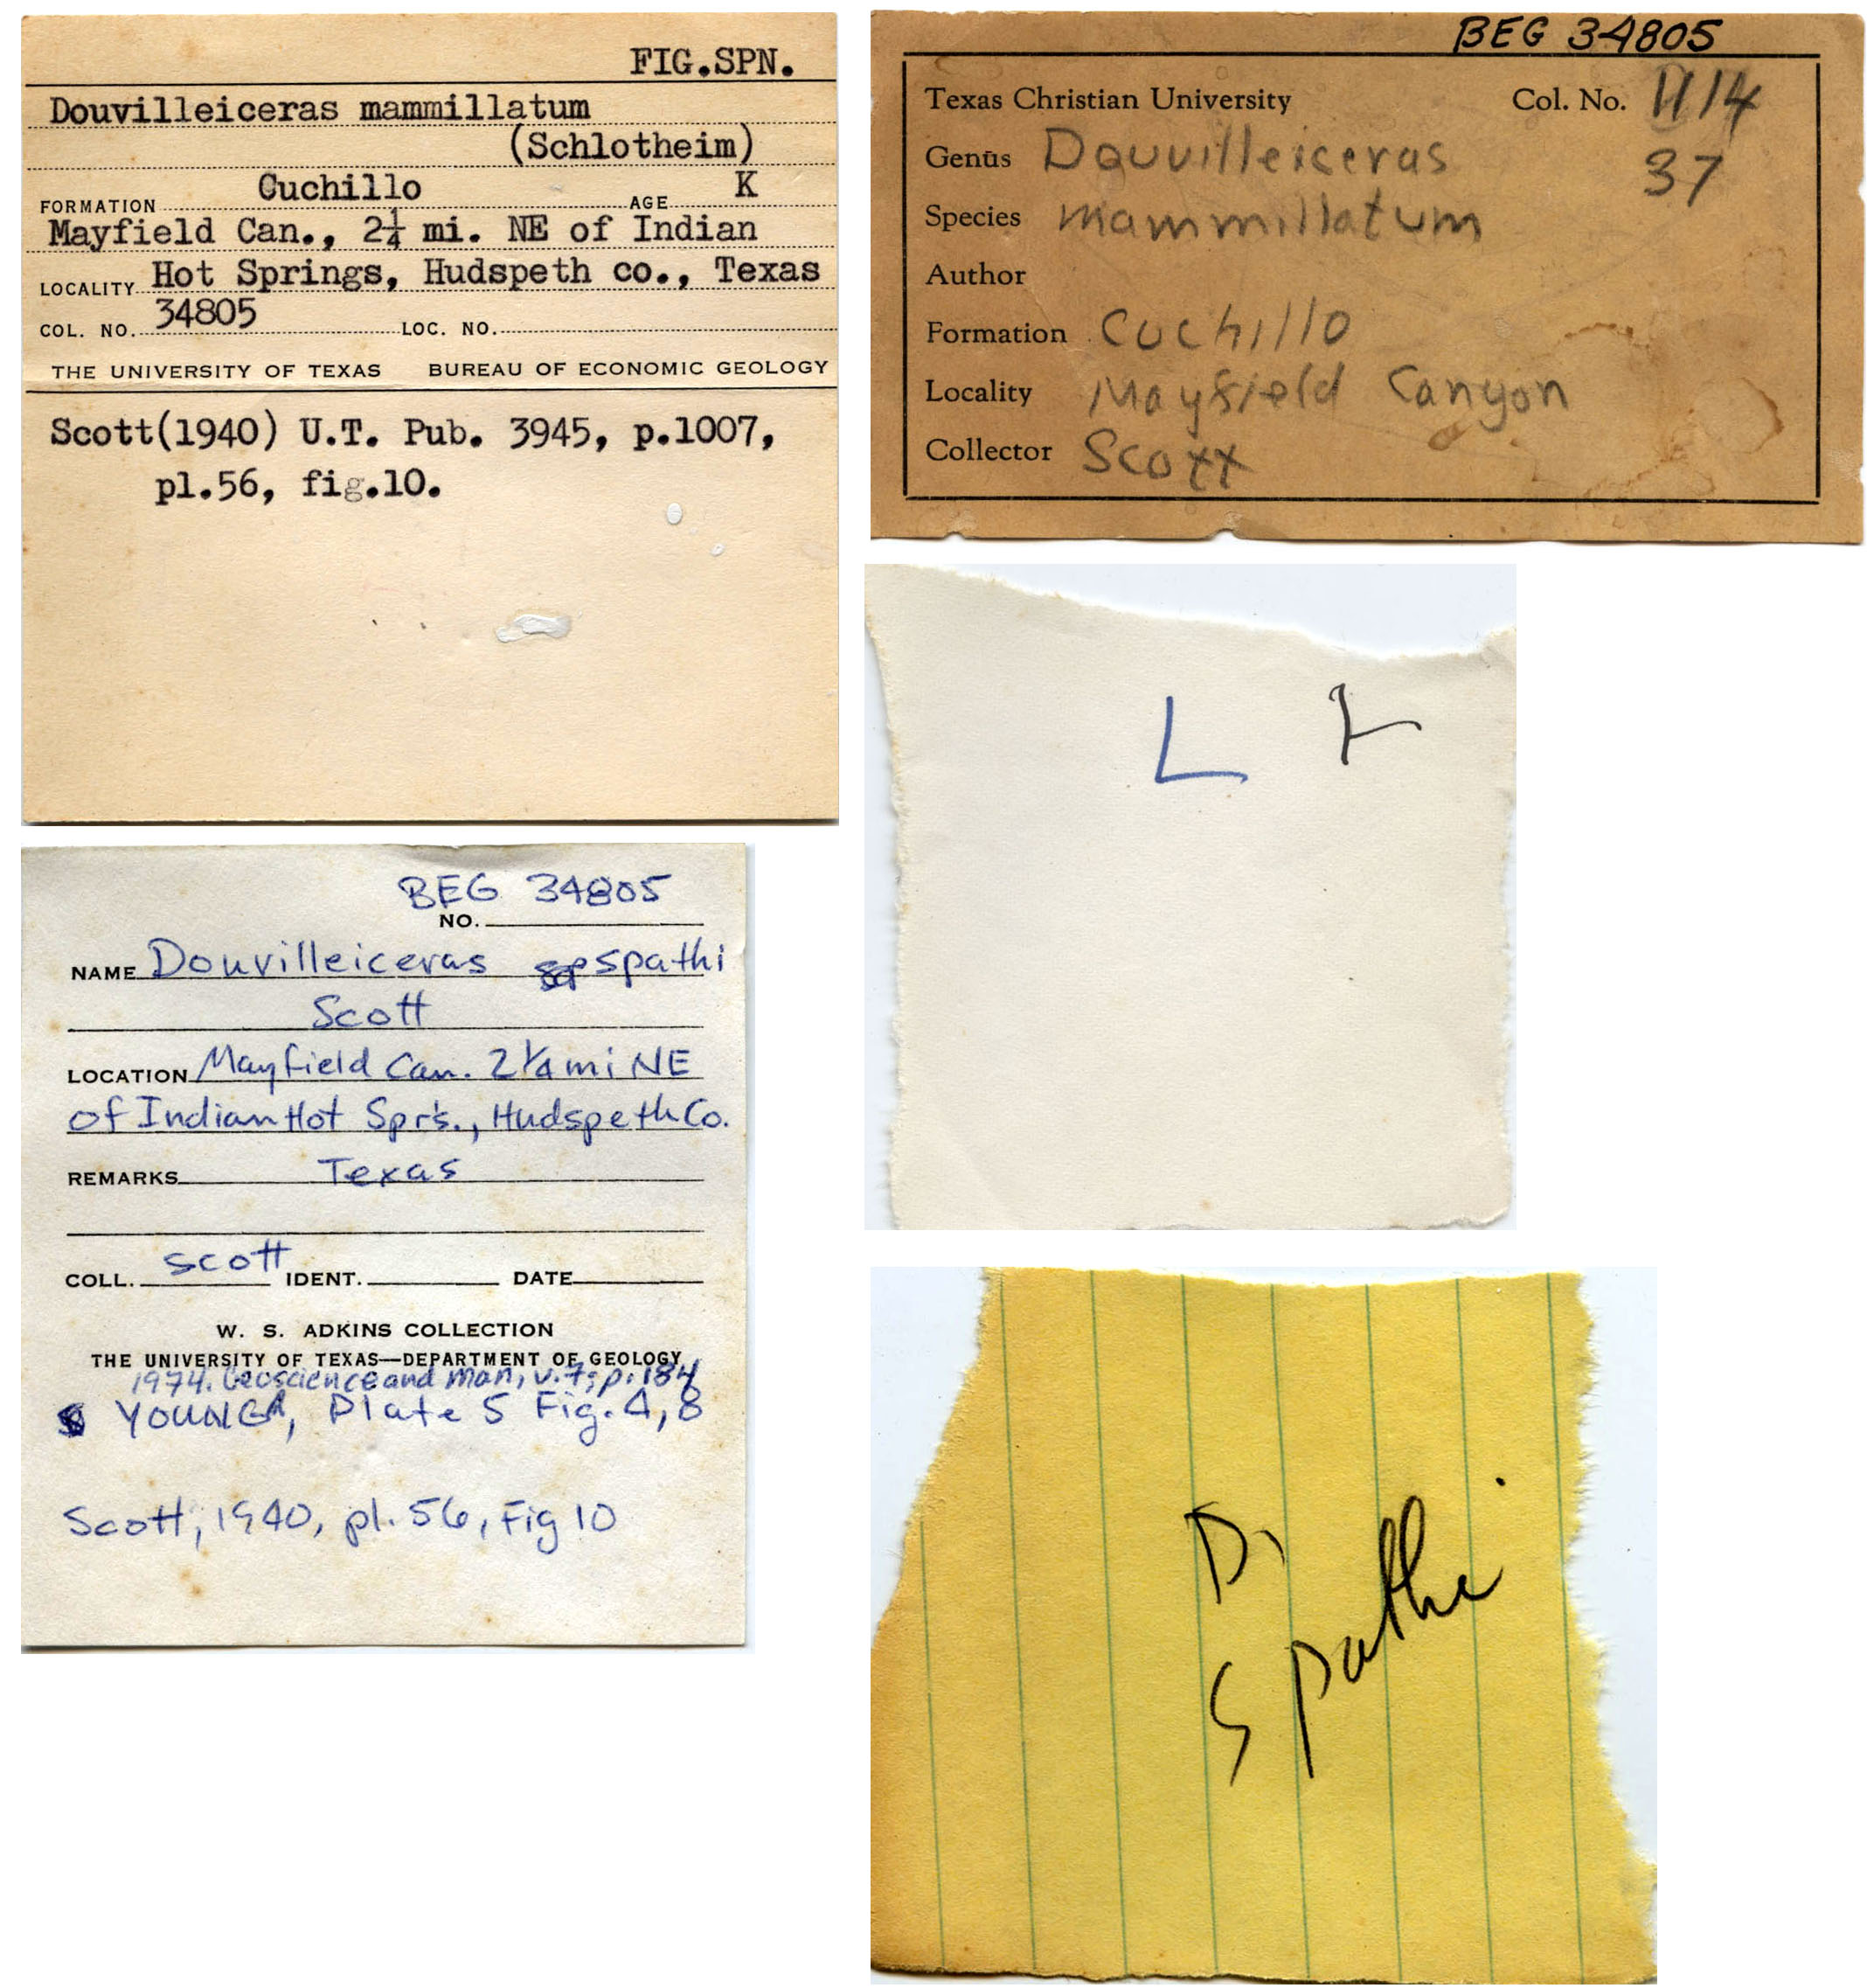 FIG.SPN.
Douvilleiceras mammillatum
(Schlotheim)
FORMATION Cuchillo AGE K
Mayfield Can., 2¼ mi. NE of Indian
LOCALITY Hot Springs, Hudspeth co., Texas
COL. NO. 34805 LOC. NO.
THE UNIVERSITY OF TEXAS BUREAU OF ECONOMIC GEOLOGY
Scott(1940) U.T. Pub. 3945, p.1007,
pl.56, fig.10.
BEG 34805
NO.
NAME Douvilleiceras spathi
Scott
LOCATION Mayfield Can. 2¼ mi NE
of Indian Hot Spr's., Hudspeth Co.
REMARKS Texas
COLL. Scott IDENT. DATE
W. S. ADKINS COLLECTION
THE UNIVERSITY OF TEXAS—DEPARTMENT OF GEOLOGY
1974. Geoscience and Man, v.7; p.184
YOUNG, Plate 5 Fig. 4, 8
Scott, 1940, pl. 56, Fig 10
BEG 34805
Texas Christian University Col. No. 1114
37
Genus Douvilleiceras
Species mammillatum
Author
Formation Cuchillo
Locality Mayfield Canyon
Collector Scott
L
D.
spathi